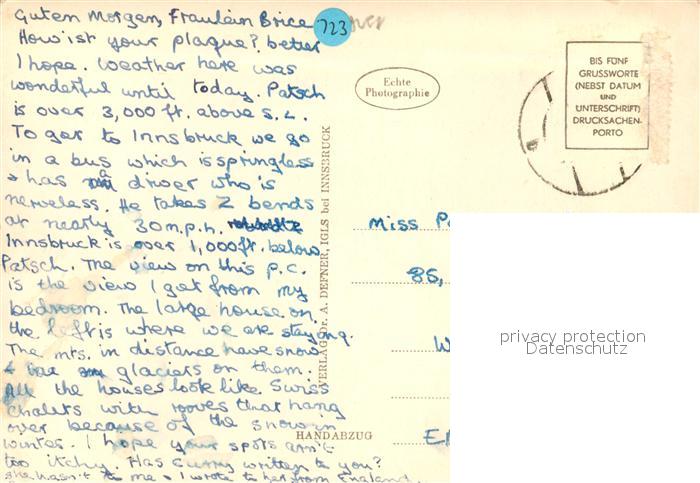 Guten Morgen, Fraulein Brice
How ist your plaque? better
I hope. Weather here was
wonderful until today. Patsch
is over 3,000 ft. above S.L.
To get to Innsbruck we go
in a bus which is springless
& has a driver who is
nerveless. He takes Z bends
at nearly 30 m.p.h.
Innsbruck is over 1,000 ft. below
Patsch. The view on this p.c.
is the view I get from my
bedroom. The large house on
the left is where we are staying.
The mts. in distance have snow
& glaciers on them.
All the houses look like Swiss
chalets with rooves that hang
over because of the snow in
winter. I hope your spots aren't
too itchy. Has Curry written to you?
She hasn't to me & I wrote to her from England.
723
Echte
Photographie
BIS FÜNF
GRUSSWORTE
(NEBST DATUM
UND
UNTERSCHRIFT)
DRUCKSACHEN-
PORTO
VERLAG Dr. A. DEFNER, IGLS bei INNSBRUCK
HANDABZUG
Miss
85,
W
E
privacy protection
Datenschutz